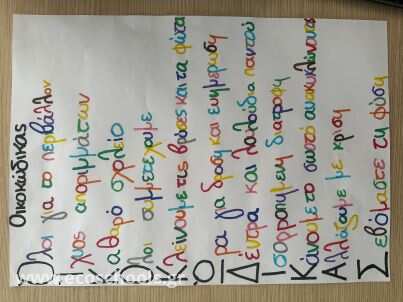 Οικοκώδικας
Όλοι για το περβάλλον
Ίχνος απορριμμάτων
Καθαρό σχολείο
Όλοι συμμετέχουμε
Κλείνουμε τις βρύσες και τα φώτα
Ώρα για δράση και ενημέρωση
Δέντρα και λουλούδια παντού
Ισορροπημένη διατροφή
Κάνουμε το σωστό ανακυκλώνοντας
Αλλάζουμε με κρίση
Σεβόμαστε τη φύση
www.ecoschools.gr